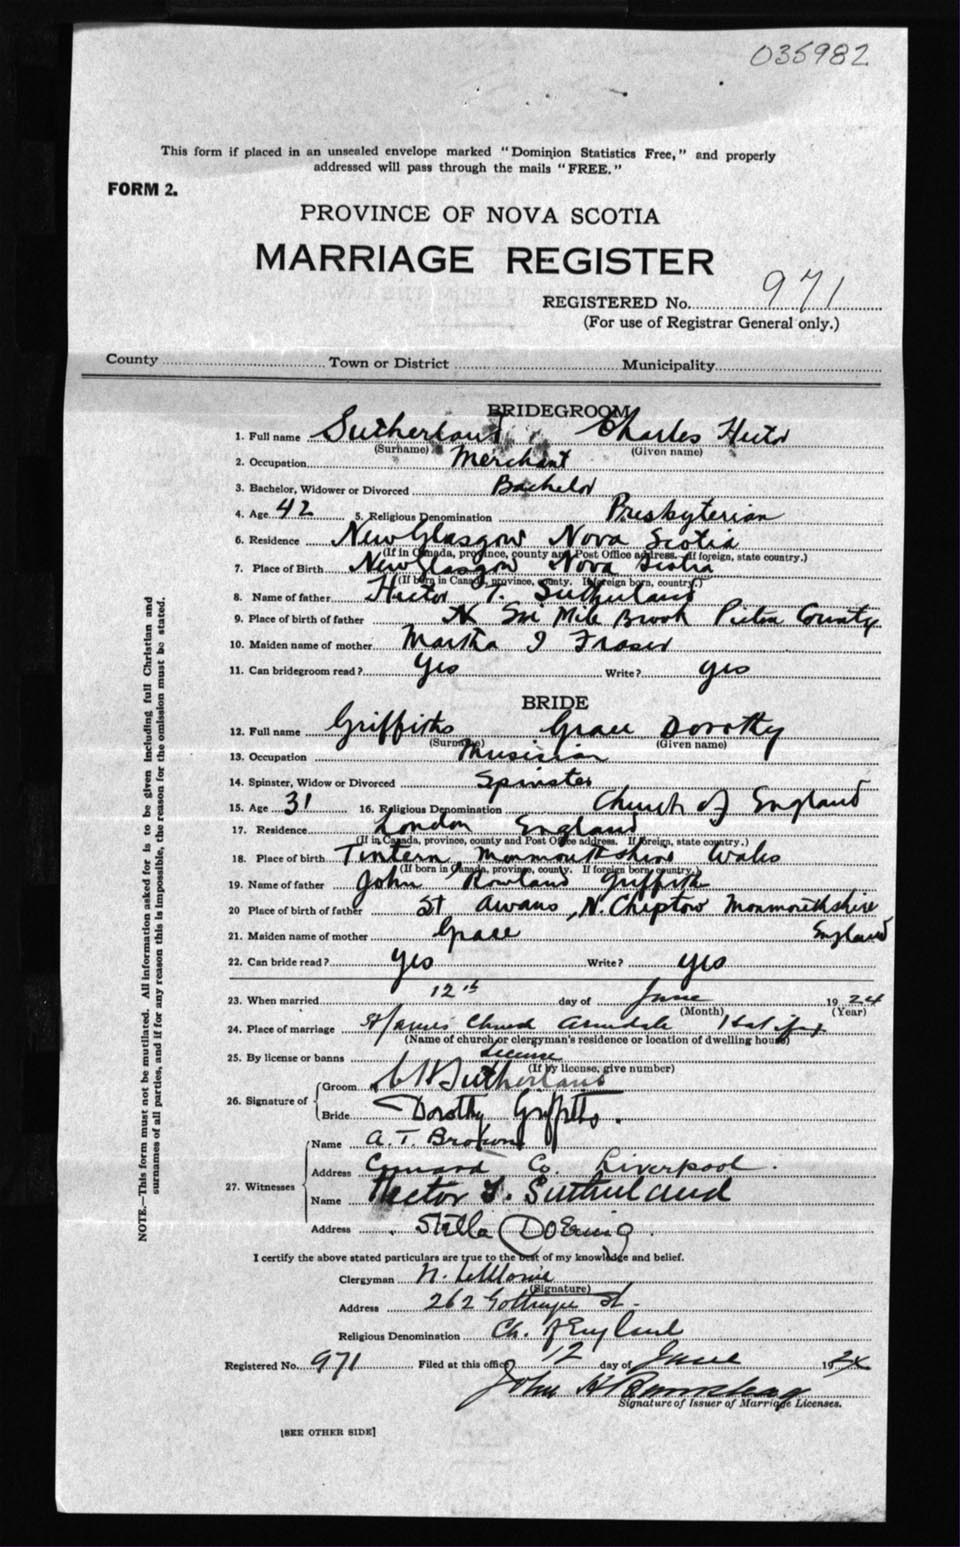 035982
This form if placed in an unsealed envelope marked "Dominion Statistics Free," and properly
addressed will pass through the mails "FREE."
FORM 2.
PROVINCE OF NOVA SCOTIA
MARRIAGE REGISTER
REGISTERED No. 971
(For use of Registrar General only.)
County Town or District Municipality
BRIDEGROOM
1. Full name Sutherland Charles Hector
(Surname) (Given name)
2. Occupation Merchant
3. Bachelor, Widower or Divorced Bachelor
4. Age 42 5. Religious Denomination Presbyterian
6. Residence New Glasgow Nova Scotia
(If in Canada, province, county and Post Office address. If foreign, state country.)
7. Place of Birth New Glasgow Nova Scotia
(If born in Canada, province, county. If foreign born, country.)
8. Name of father Hector T. Sutherland
9. Place of birth of father Six Mile Brook Pictou County
10. Maiden name of mother Martha J Fraser
11. Can bridegroom read? Yes Write? yes
BRIDE
12. Full name Griffiths Grace Dorothy
(Surname) (Given name)
13. Occupation Musician
14. Spinster, Widow or Divorced Spinster
15. Age 31 16. Religious Denomination Church of England
17. Residence London England
(If in Canada, province, county and Post Office address. If foreign, state country.)
18. Place of birth Tintern Monmouthshire Wales
(If born in Canada, province, county. If foreign born, country.)
19. Name of father John Rowland Griffiths
20 Place of birth of father St Awans, N. Cheptow Monmouthshire
England
21. Maiden name of mother Grace
22. Can bride read? yes Write? yes
23. When married 12th day of June 1924
(Month) (Year)
24. Place of marriage St James Church Armdale Halifax
(Name of church or clergyman's residence or location of dwelling house)
25. By license or banns License
(If by license, give number)
26. Signature of
Groom C H Sutherland
Bride Dorothy Griffiths.
27. Witnesses
Name A. T. Brown
Address Cunard Co. Liverpool.
Name Hector T. Sutherland
Address Stella
I certify the above stated particulars are true to the best of my knowledge and belief.
Clergyman N. LeMoine
(Signature)
Address 262 Gottingen St.
Religious Denomination Ch. of England
Registered No. 971 Filed at this office 12 day of June 1924
John H
Signature of Issuer of Marriage Licenses.
[SEE OTHER SIDE]
NOTE.—This form must not be mutilated. All information asked for is to be given including full Christian and
surnames of all parties, and if for any reason this is impossible, the reason for the omission must be stated.